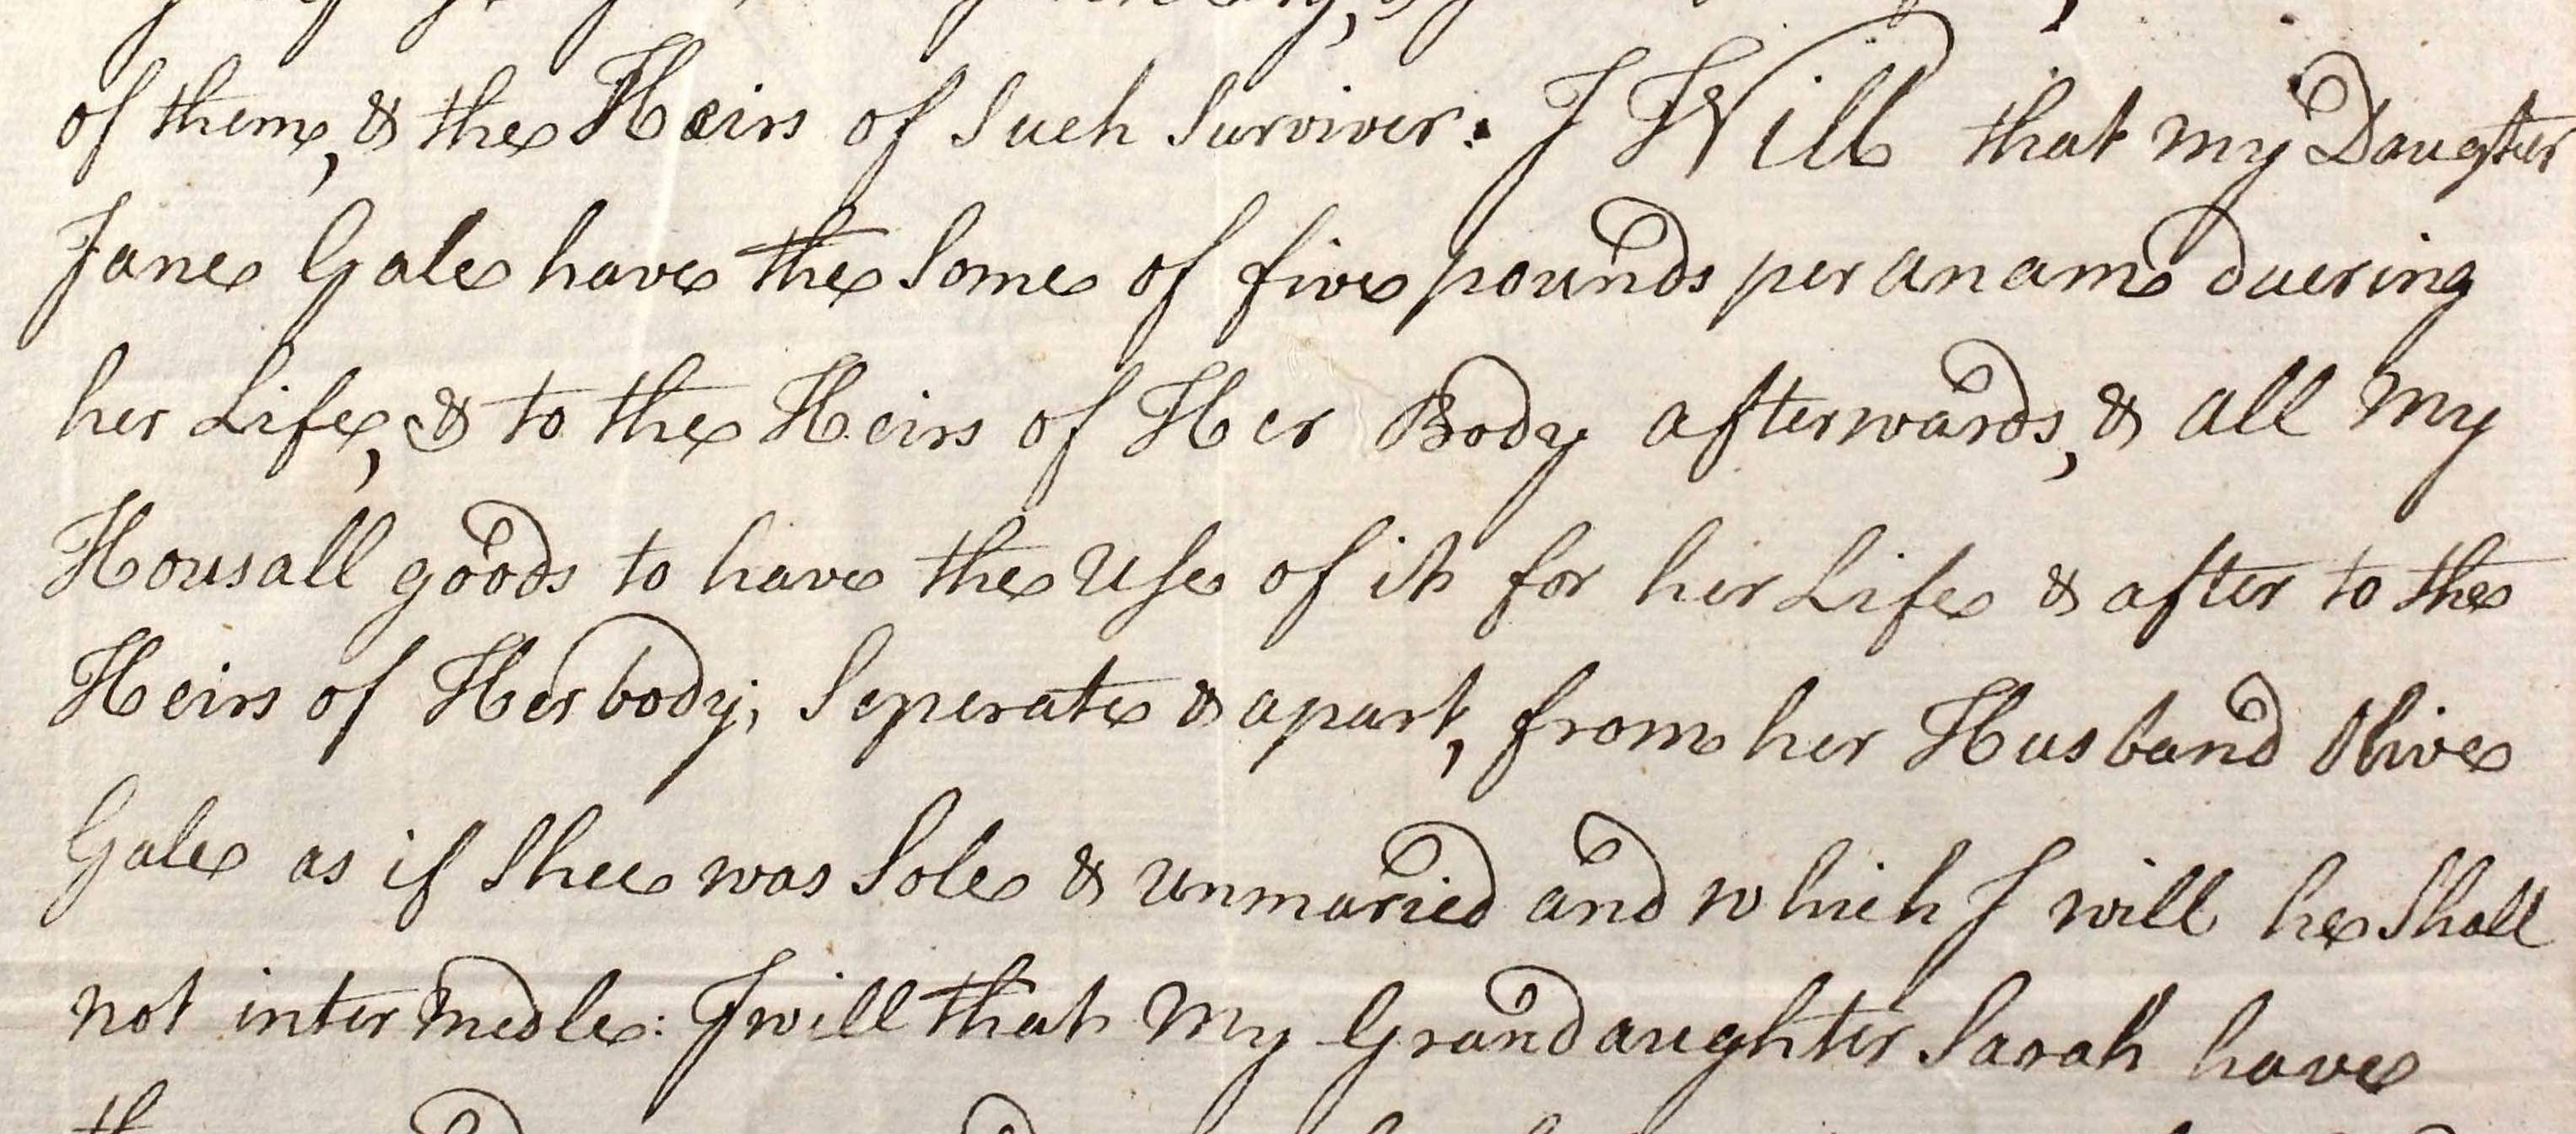 of them, & the Heirs of Such Surviver: I Will that my Daugter
Jane Gale have the Some of five pounds per anam duering
her Life, & to the Heirs of Her Body afterwards, & all my
Housall goods to have the Use of it for her Life & after to the
Heirs of Her body; Seperate & apart, from her Husband Olive
Gale as if Shee was Sole & unmaried and which I will he Shall
not intermedle: I will that My Grandaughter Sarah have